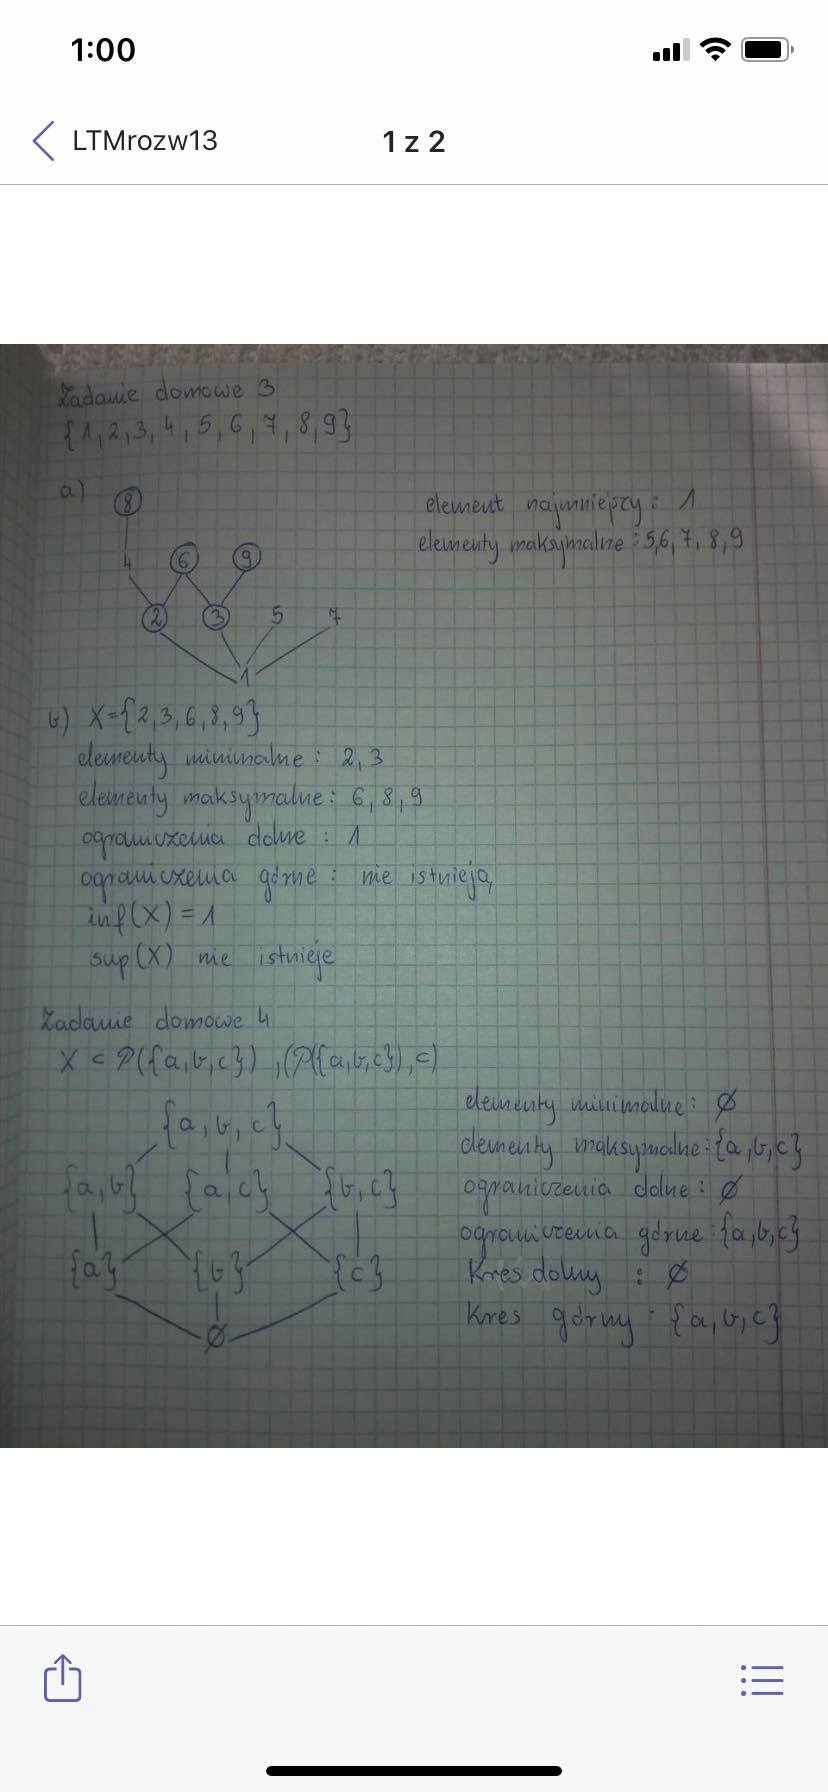 1:00
LTMrozw13
1 z 2
Zadanie domowe 3
{1,2,3,4,5,6,7,8,9}
a)
8
4 6 9
2 3 5 7
1
element najmniejszy: 1
elementy maksymalne: 5,6,7,8,9
b) X={2,3,6,8,9}
elementy minimalne: 2,3
elementy maksymalne: 6,8,9
ograniczenia dolne: 1
ograniczenia górne: nie istnieją
inf(X)=1
sup(X) nie istnieje
Zadanie domowe 4
X ⊂ P({a,b,c}), (P({a,b,c}),⊂)
{a,b,c}
{a,b} {a,c} {b,c}
{a} {b} {c}
∅
elementy minimalne: ∅
elementy maksymalne: {a,b,c}
ograniczenia dolne: ∅
ograniczenia górne: {a,b,c}
Kres dolny : ∅
Kres górny: {a,b,c}